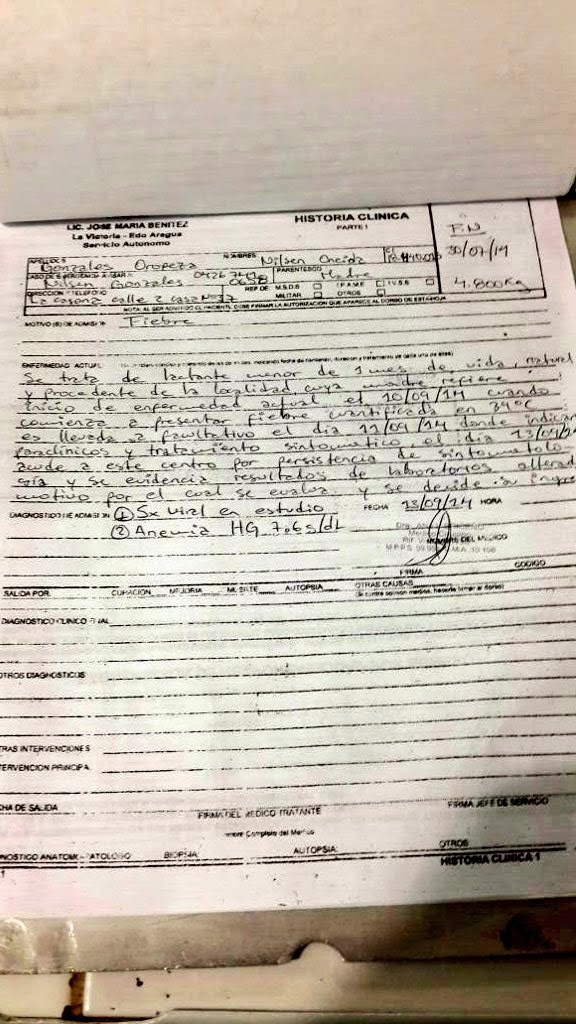 LIC. JOSE MARIA BENITEZ
La Victoria - Edo Aragua
Servicio Autonomo
HISTORIA CLINICA
PARTE I
F.N
30/07/14
4.800Kg
APELLIDOS
NOMBRES
C.I
Gonzales Oropeza
Nilsen Oneida
PARENTESCO
Nilsen Gonzales
Madre
REF DE: M.S.D.S I.P.A.M.E I.V.S.S
DIRECCION Y TELEFONO
MILITAR OTROS
La casona calle 2 casa Nº
NOTA: AL SER ADMITIDO EL PACIENTE, DEBE FIRMAR LA AUTORIZACION QUE APARECE AL DORSO DE ESTA HOJA
MOTIVO (S) DE ADMISION Fiebre
ENFERMEDAD ACTUAL
Se trata de lactante menor de 1 mes de vida, natural
y procedente de la localidad cuya madre refiere
inicio de enfermedad actual el 10/09/14 cuando
comienza a presentar fiebre cuantificada en 39ºC
es llevada a facultativo el dia 11/09/14 donde indican
paraclinicos y tratamiento sintomatico el dia 13/09/14
acude a este centro por persistencia de sintomatolo
gia y se evidencia resultados de laboratorios alterad
motivo por el cual se evalua y se decide su ingre
DIAGNOSTICO DE ADMISION ① Sx viral en estudio FECHA 13/09/14 HORA
② Anemia HG 7.6 g/dl
NOMBRE DEL MEDICO
FIRMA
CODIGO
SALIDA POR: CURACION MEJORIA MUERTE AUTOPSIA OTRAS CAUSAS
DIAGNOSTICO CLINICO FINAL
OTROS DIAGNOSTICOS
TRAS INTERVENCIONES
TERVENCION PRINCIPAL
CHA DE SALIDA
FIRMA DEL MEDICO TRATANTE
FIRMA JEFE DE SERVICIO
Nombre Completo del Medico
NOSTICO ANATOMO-PATOLOGO BIOPSIA: AUTOPSIA: OTROS
HISTORIA CLINICA 1
1